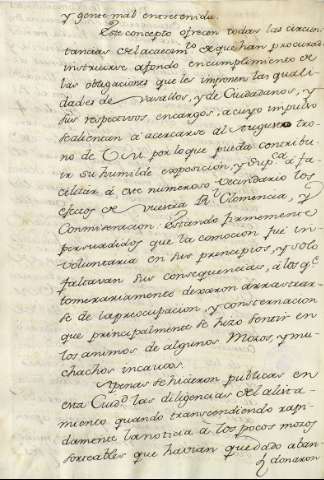 y gente mal entretenida.
Este concepto ofrecen todas las circuns
tancias del acaecim.to de que han procurado
instruirse afondo en cumplimiento de
las obligaciones que les imponen las quali
dades de Vasallos, y de Ciudadanos, y
sus respectivos encargos, a cuyo impulso
se alientan á acercarse al Augusto Tro
no de por lo que pueda contribu
ir su humilde exposicion, y Sup.ca á fa
cilitar á este numeroso Vecindario los
efectos de vuestra R.l Clemencia, y
Conmiseracion. Estando firmemente
persuadidos que la comocion fué in
voluntaria en sus principios, y solo
faltavan sus consequencias, á los q.e
temerariamente dexaron arrastrar
se de la preocupacion, y consternacion
que principalmente se hizo sentir en
los animos de algunos Mozos, y mu
chachos incautos.
Apenas se hicieron publicas en
esta Ciud.d las diligencias del alista
miento quando transcendiendo rapi
damente la noticia á los pocos mozos
sorteables que havian quedado aban
donaron